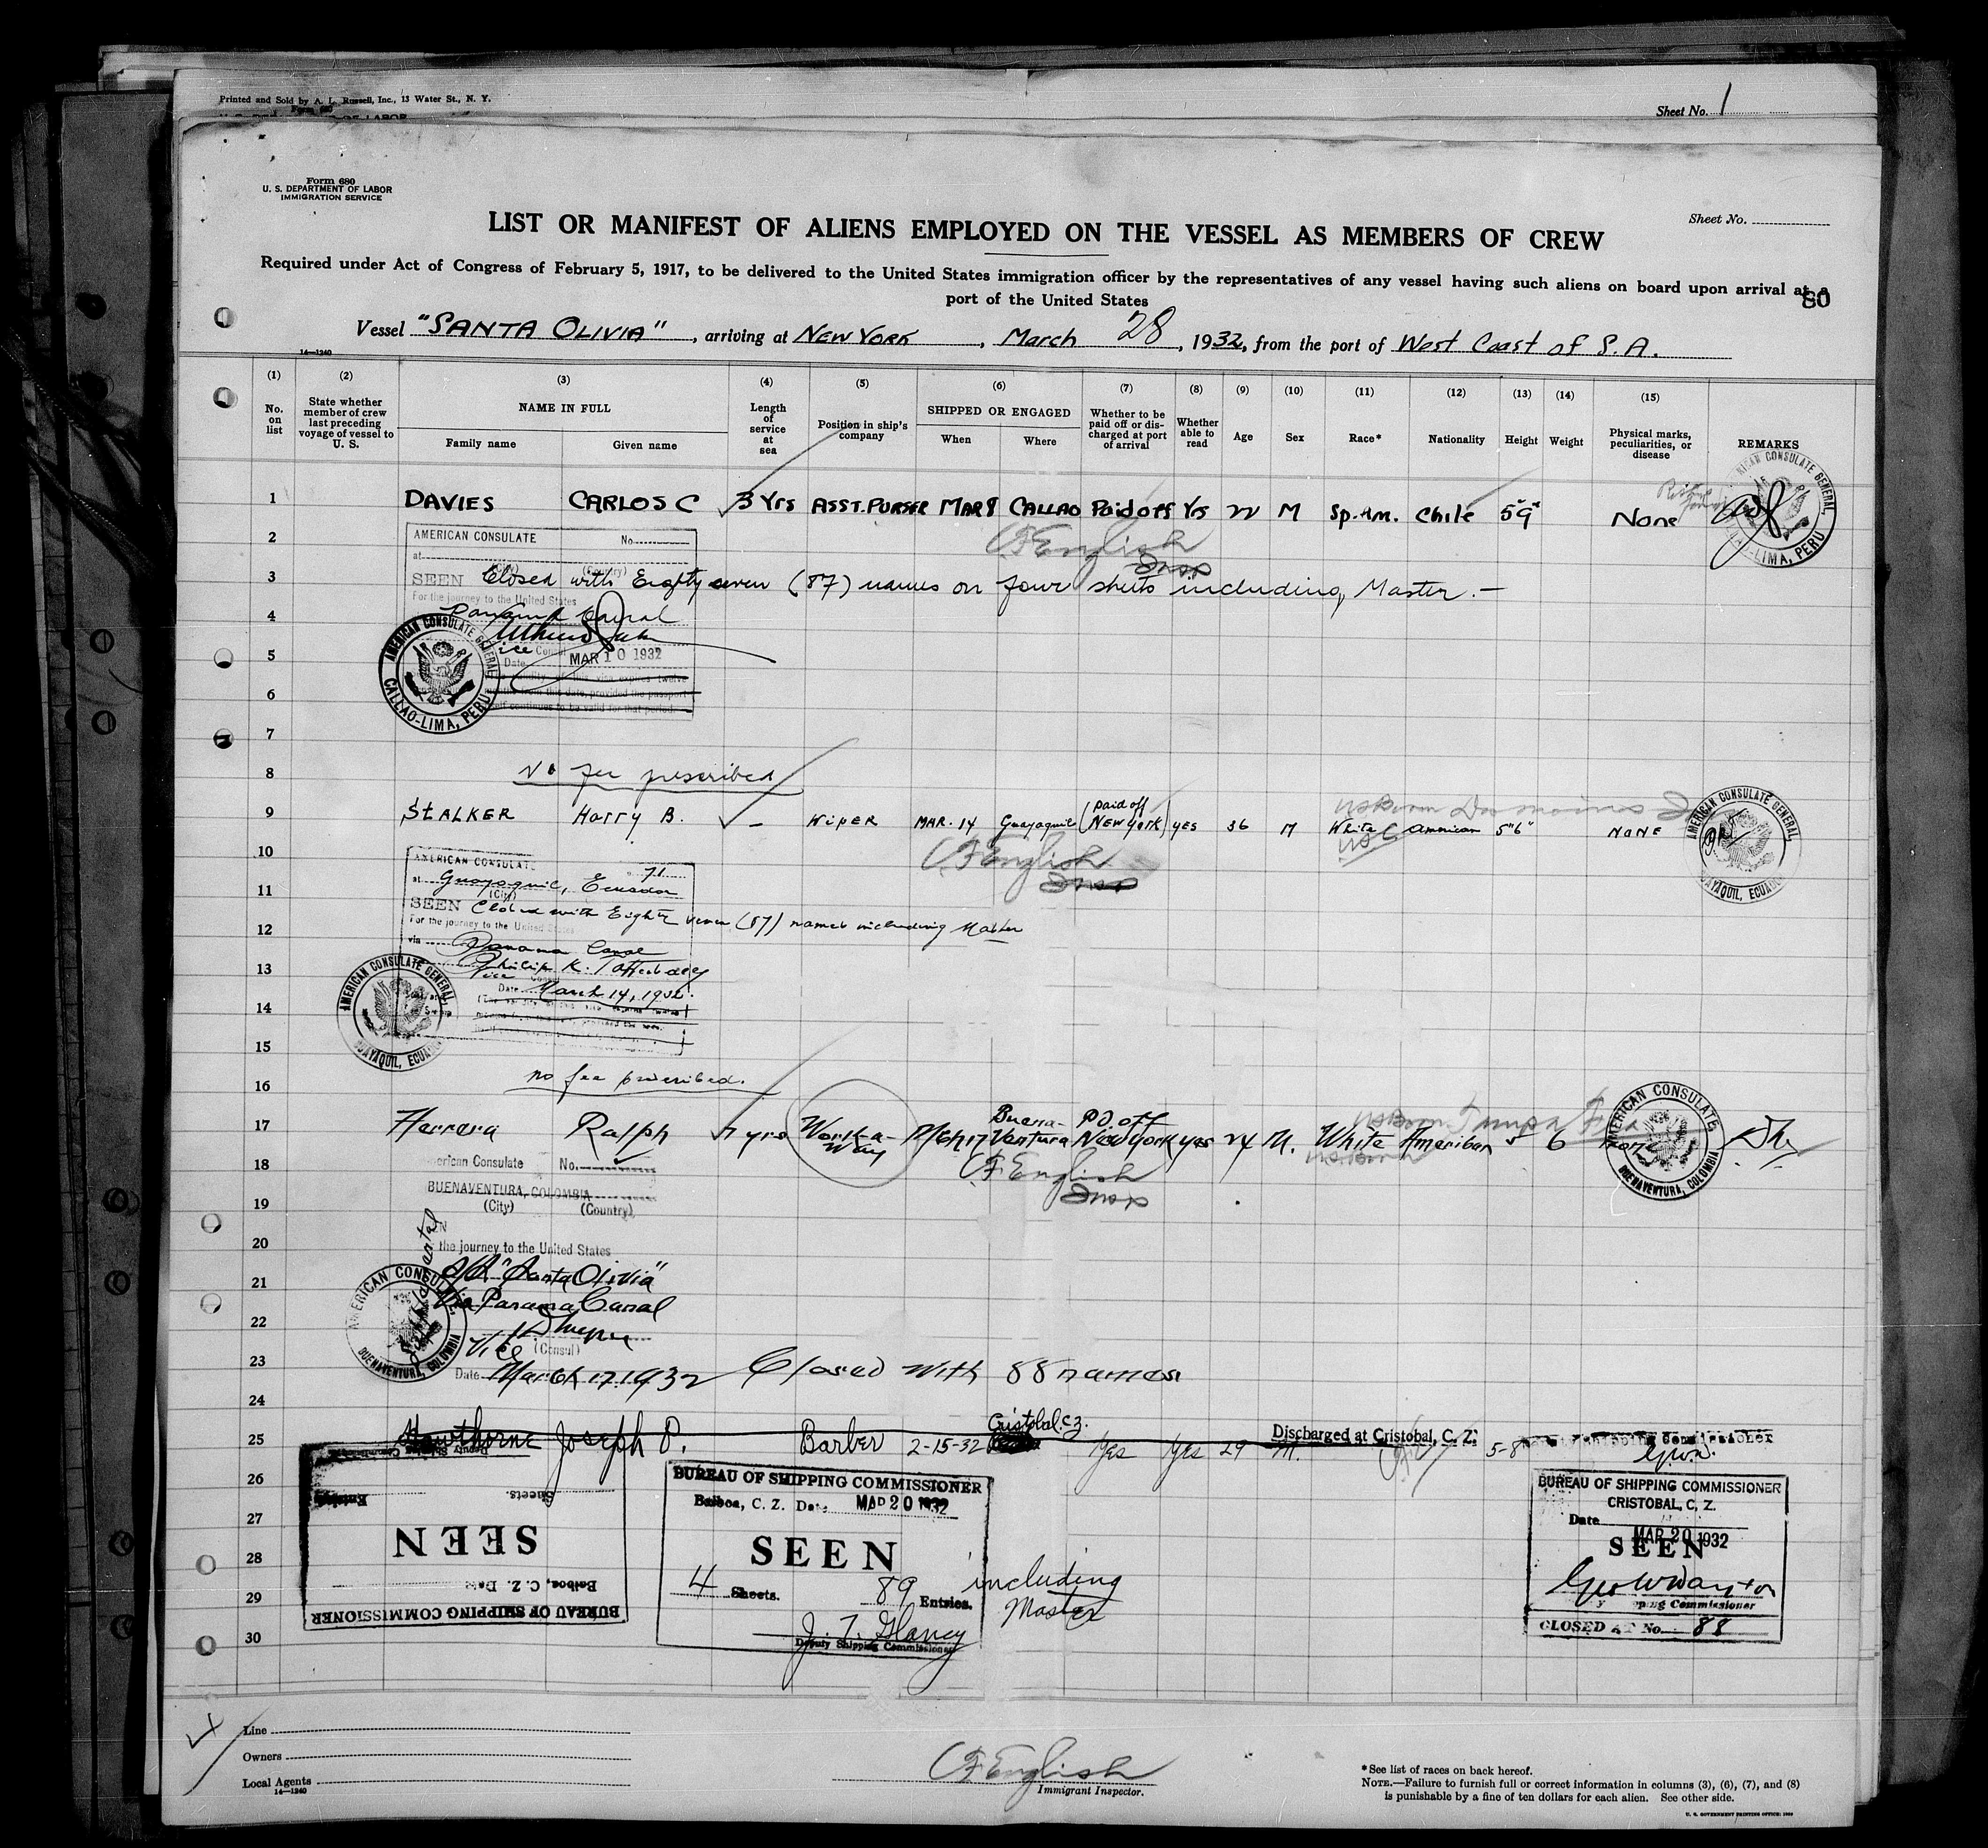 Printed and Sold by A. L. Russell, Inc., 13 Water St., N. Y.
Form 680
Sheet No. 1
Form 680
U. S. DEPARTMENT OF LABOR
IMMIGRATION SERVICE
Sheet No.
LIST OR MANIFEST OF ALIENS EMPLOYED ON THE VESSEL AS MEMBERS OF CREW
Required under Act of Congress of February 5, 1917, to be delivered to the United States immigration officer by the representatives of any vessel having such aliens on board upon arrival at a
port of the United States
80
Vessel "SANTA OLIVIA", arriving at NEW YORK, March 28, 1932, from the port of West Coast of S.A.
14—1240
(1) (2) (3) (4) (5) (6) (7) (8) (9) (10) (11) (12) (13) (14) (15)
No. on list
State whether member of crew last preceding voyage of vessel to U. S.
NAME IN FULL
Family name
Given name
Length of service at sea
Position in ship's company
SHIPPED OR ENGAGED
When
Where
Whether to be paid off or discharged at port of arrival
Whether able to read
Age
Sex
Race*
Nationality
Height
Weight
Physical marks, peculiarities, or disease
REMARKS
1 DAVIES CARLOS C 3 Yrs ASST. PURSER MAR 8 CALLAO Paid off Yes 22 M Sp. Am. Chile 5'9" None
2 AMERICAN CONSULATE No.
CF English
Insp
at
(City) (Country)
3 SEEN Closed with Eighty seven (87) names on four sheets including Master.—
For the journey to the United States
4 Panama Canal
5 Vice Consul
Date MAR 10 1932
6
AMERICAN CONSULATE GENERAL CALLAO-LIMA, PERU
AMERICAN CONSULATE GENERAL CALLAO-LIMA, PERU
7
8 No fee prescribed
9 STALKER Harry B. — WIPER MAR. 14 Guayaquil (Paid off NEW YORK) YES 36 M White American 5"6" NONE
US Born Des Moines
US C
10 CF English
Insp
AMERICAN CONSULATE 71
11 at Guayaquil, Ecuador
(City)
SEEN Closed with Eighty seven (87) names including Master
12 For the journey to the United States
via Panama Canal
13 Philip K.
Vice Consul
Date March 14, 1932.
14
15
AMERICAN CONSULATE GENERAL, GUAYAQUIL, ECUADOR
AMERICAN CONSULATE GENERAL, GUAYAQUIL, ECUADOR
16 no fee prescribed.
17 Herrera Ralph 7 yrs Work-a-Way Mch 17 Buena-Ventura Pd. off New York yes 24 M. White American 5 6 none
US Born Tampa Fla
US Born
18 American Consulate No.
CF English
Insp
BUENAVENTURA, COLOMBIA
19 (City) (Country)
20 the journey to the United States
21 S/S "Santa Olivia"
Via Panama Canal
22 Vice (Consul)
23 Date March 17. 1932 Closed with 88 names
AMERICAN CONSULATE BUENAVENTURA, COLOMBIA
AMERICAN CONSULATE BUENAVENTURA, COLOMBIA
24
25 Hawthorne Joseph P. Barber 2-15-32 Cristobal. C.Z. Yes Yes 29 M. Discharged at Cristobal, C. Z. 5-8
Shipping Commissioner
26
27
28
29
30
BUREAU OF SHIPPING COMMISSIONER
Balboa, C. Z. Date
SEEN
Sheets. Entries
BUREAU OF SHIPPING COMMISSIONER
Balboa, C. Z. Date MAR 20 1932
SEEN
4 Sheets. 89 Entries. including Master
J. T. Glancy
Deputy Shipping Commissioner
BUREAU OF SHIPPING COMMISSIONER
CRISTOBAL, C. Z.
Date MAR 20 1932
SEEN
Shipping Commissioner
CLOSED AT No. 88
Line
Owners
Local Agents
14—1240
CF English
Immigrant Inspector.
*See list of races on back hereof.
NOTE.—Failure to furnish full or correct information in columns (3), (6), (7), and (8)
is punishable by a fine of ten dollars for each alien. See other side.
U. S. GOVERNMENT PRINTING OFFICE: 1930